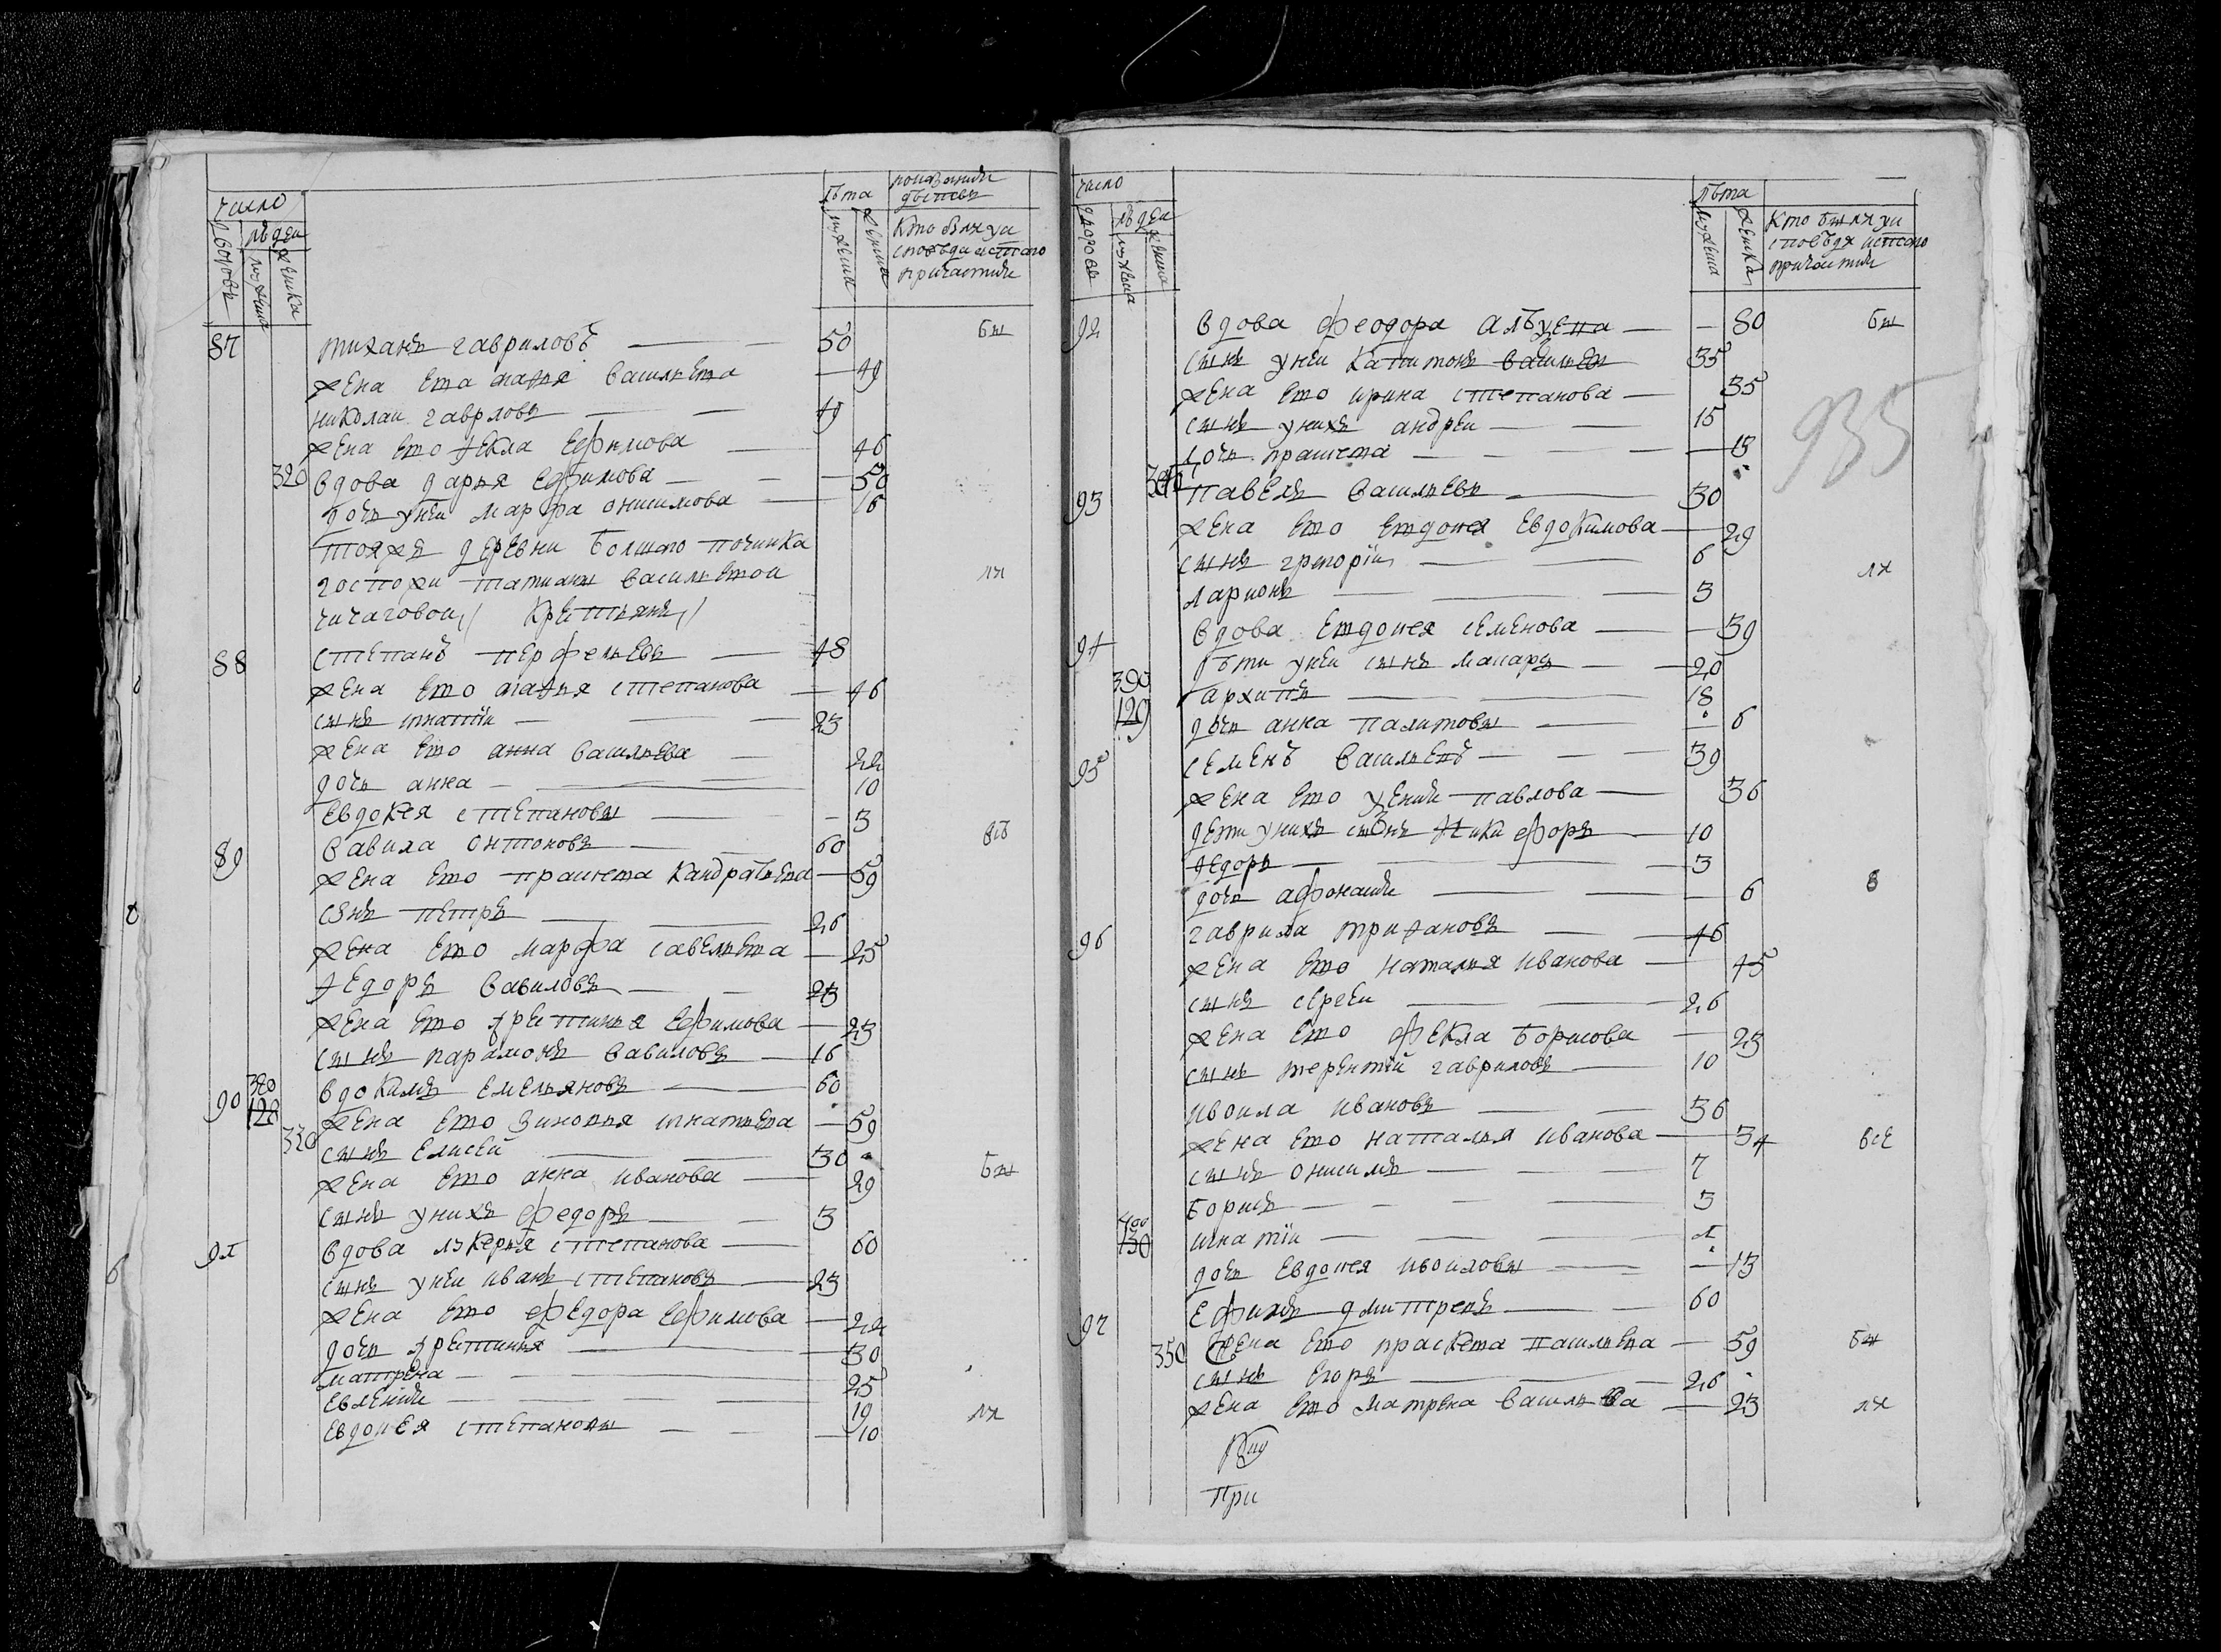 число
дворовъ
людеи
мужеска
женска
лѣта
мужеска
женска
показание
дѣиства
Кто былъ у и
споведи истаго
причастия
87 тиханъ гавриловъ 50 бы
жена ево мавра васильева 49
николаи гаврловъ 49
жена ево фекла Ефимова 46
320 вдова дарья Ефимова 50
дочь унеи марфа онисимова 16
тояже деревни болшаго починка
госпожи татианы васильевои лх
чичаговои крестьянъ
88 степанъ перфильевъ 48
жена ево марья степанова 46
сынъ игнатіи 23
жена ево анна васильева 22
дочь анна 10
Евдокея степановы 3
89 вавила онтоновъ 60
жена ево праскета кандратьева 59
сынъ петръ 26
жена ево марфа савельева 25
федоръ вавиловъ 23
жена ево фрестинья Ефимова 23
сынъ парамонъ вавиловъ 16
90 380 128 вдокимъ Емельяновъ 60
жена ево зиновья игнатьева 59
330 сынъ Елисеи 30
жена ево анна иванова 29 бы
сынъ унихъ федоръ 3
91 вдова лукерья степанова 60
сынъ унеи иванъ степановъ 23
жена ево федора Ефимова 22
дочь фрестинья 30
матрена 25
Евлениѣ 19
Евдокея степановы 10 лх
число
дворовъ
людеи
мужеска
женска
лѣта
мужеска
женска
Кто былъ у и
споведи истаго
причастия
92 вдова феодора 80 бы
сынъ унеи капитонъ васильевъ 35
жена ево ирина степанова 35
сынъ унихъ андреи 15
дочь праскета 13
935
93 340 павелъ васильевъ 30
жена ево Евдокея Евдокимова 29
сынъ григоріи 6
ларионъ 3 лх
94 вдова Евдокея семенова 39
дѣти унеи сынъ макаръ 20
390 129 архипъ 18
дочь анна 6
95 семенъ васильевъ 39
жена ево павлова 36
дети унихъ сынъ никифоръ 10
федоръ 3
дочь афонасия 6
96 гаврила трифановъ 46
жена ево наталья иванова 45
сынъ сергеи 26
жена ево фекла борисова 23
сынъ терентіи гавриловъ 10
ивоила ивановъ 36
жена ево наталья иванова 34
сынъ онисимъ 7
борисъ 3
400 130 игнатіи 1
дочь Евдокея ивоиловы 13
97 Ефимъ дмитреевъ 60
350 жена ево праскета васильева 59 бы
сынъ Егоръ 26
жена ево матрена васильева 23 лх
При